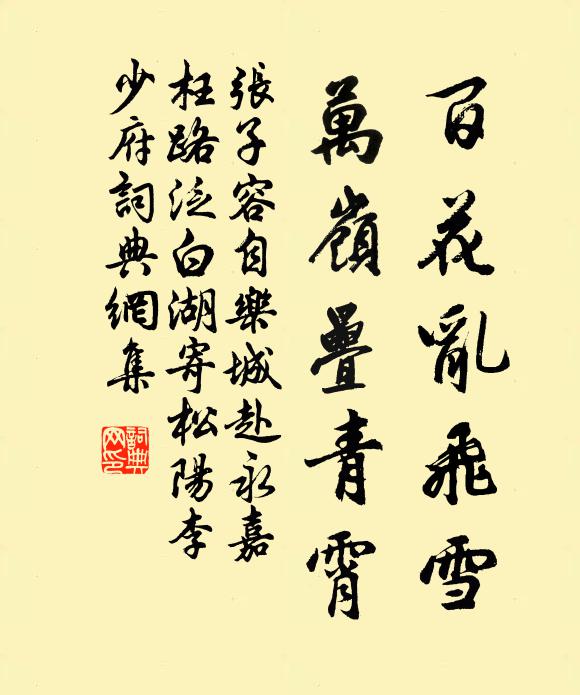 百花亂飛雪
萬嶺疊青霄
張子容自樂城赴永嘉
枉路泛白湖寄松陽李
少府詞典網集
詞典
网印